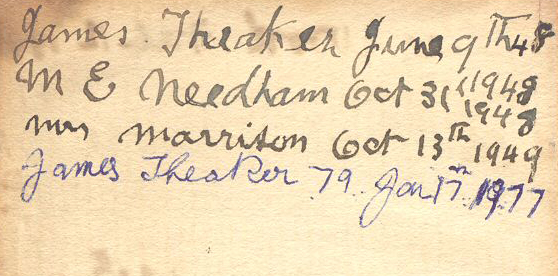 James. Theaker June 9th 48
M E Needham Oct 31st 1948
1948
Mrs Marrison Oct 13th 1949
James Theaker 79. Jan 17th 1977